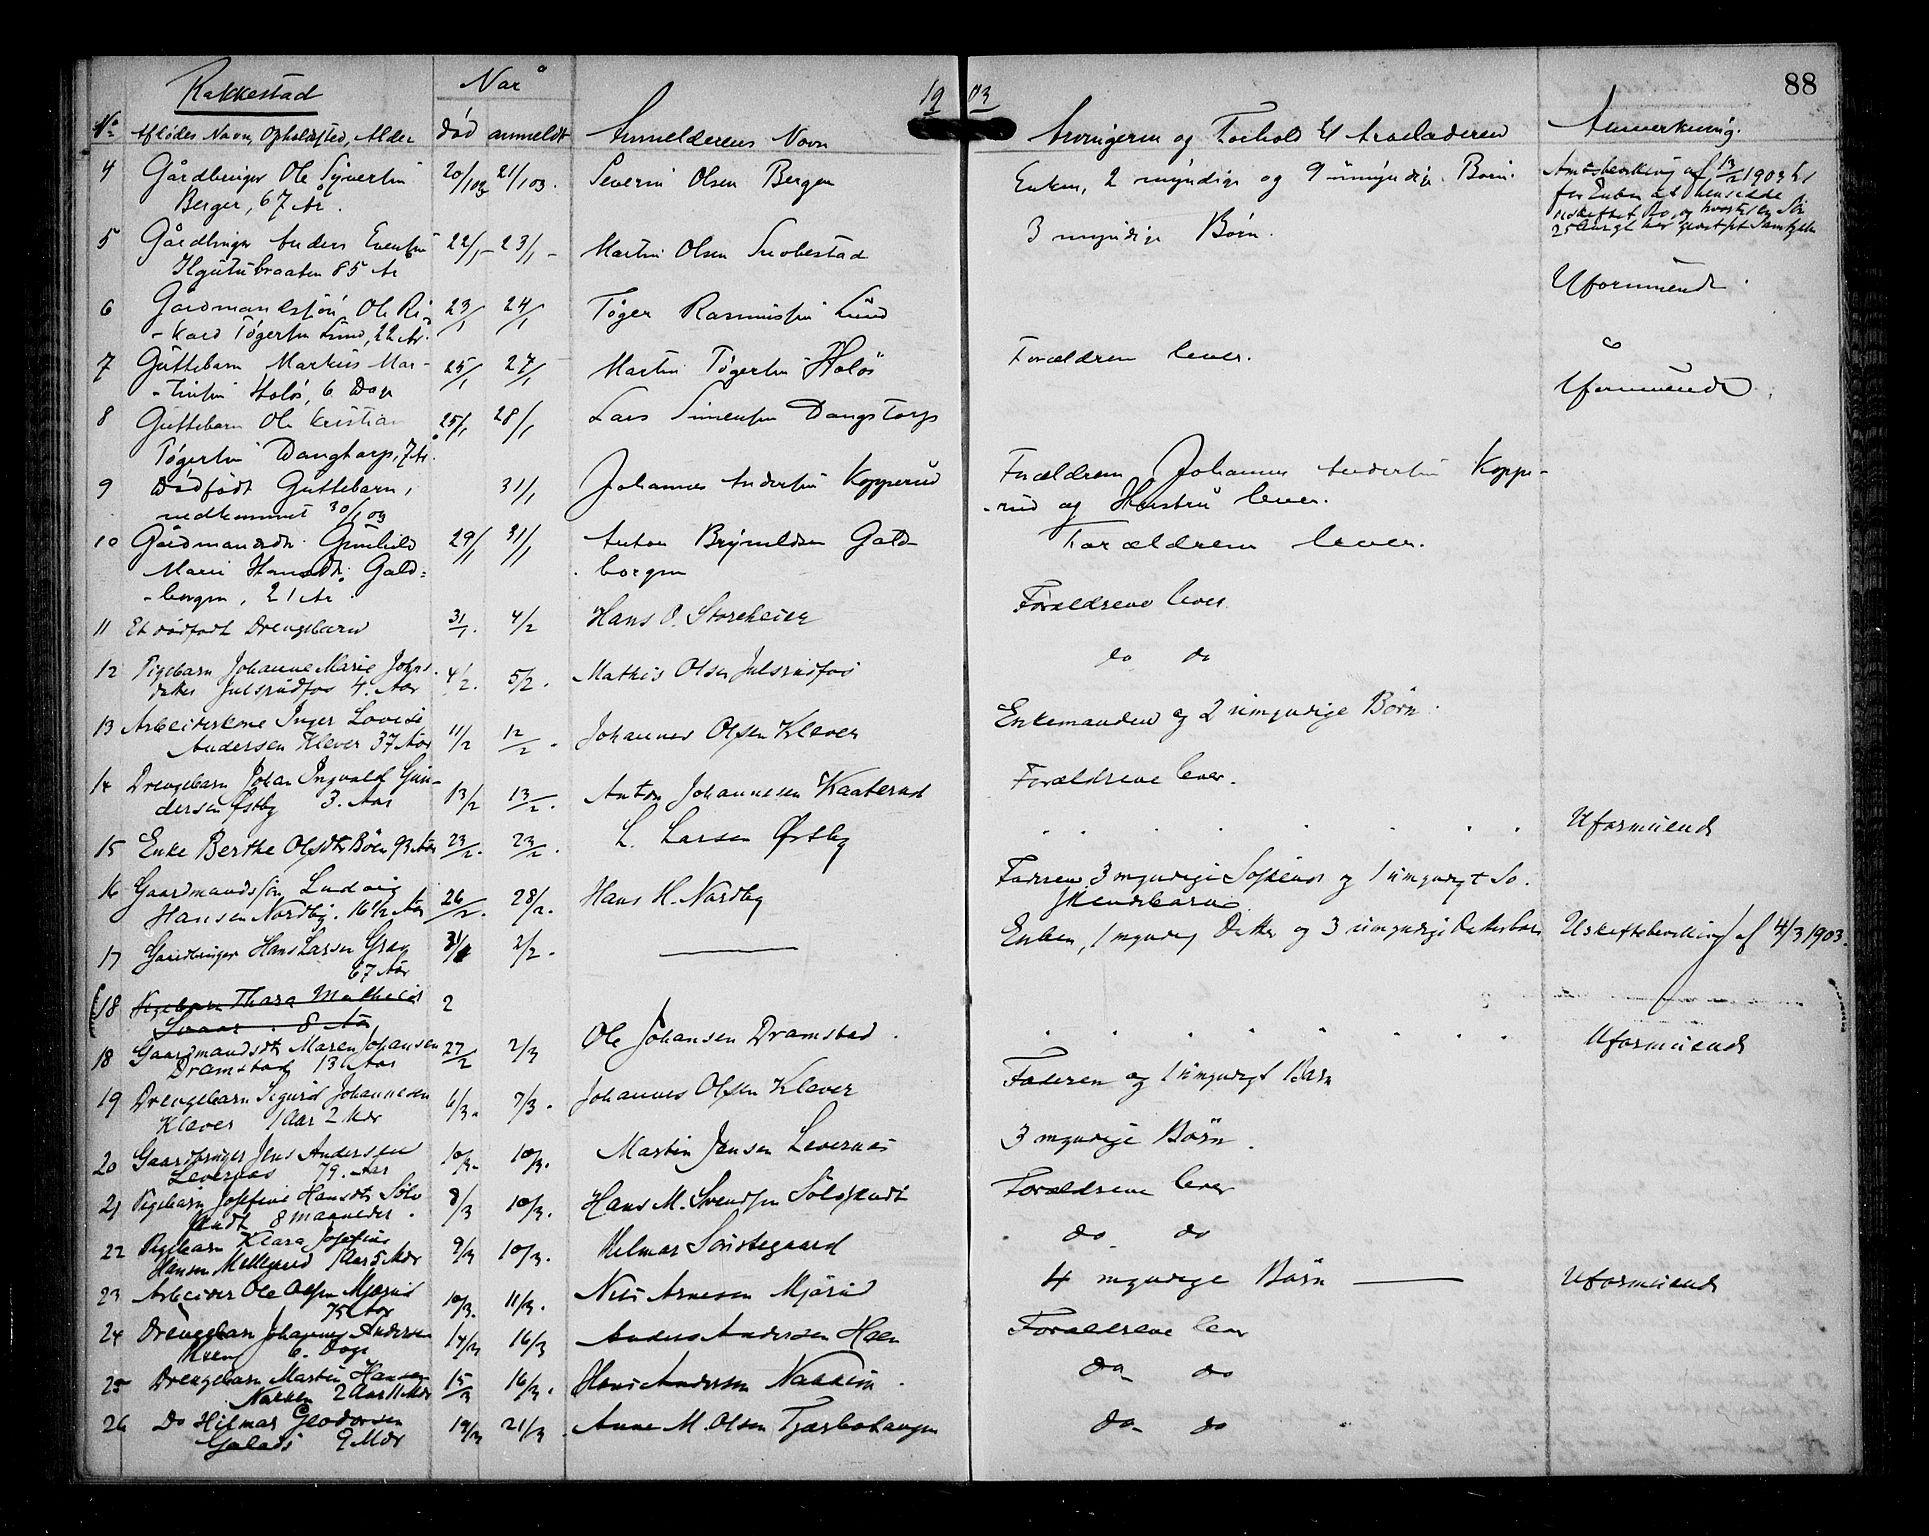 Rakkestad
Når
1903
88
No Afdødes Navn, Opholdssted, Alder død anmeldt Anmelderens Navn Arvingerne og Forhold til Arveladeren Anmerkning.
4 Gårdbruger Ole Syvertsen 20/1 03 21/1 03. Severin Olsen Berger Enken, 2 myndige og 9 umyndige Børn. Amtsbevilling af 13/2 1903
Berger, 67 År. for Enken at hensidde
uskiftet Bo, og
25 Aars
5 Gårdbruger Anders Evensen 22/1 - 23/1 - Martin Olsen 3 myndige Børn.
85 År Uformuende.
6 Gårdmandssøn Ole Ri- 23/1 24/1 Tøger Rasmussen Lund
-kard Tøgersen Lund, 22 År. Forældrene lever.
7 Guttebarn Markus Mar- 25/1 27/1 Martin Tøgersen Holøs
-tinsen Holøs, 6 Dage Uformuende.
8 Guttebarn Ole Kristian 25/1 28/1 Lars Simensen Dangstorp
Tøgersen Dangstorp, 7 År.
9 Dødfødt Guttebarn, 31/1 Johannes Andersen Kopperud Forældrene Johannes Andersen Koppe-
nedkommet 30/1 03 -rud og Hustru lever.
10 Gårdmandsdt. Gunhild 29/1 31/1 Anton Brynildsen Gald- Forældrene lever.
Marie Hansdt. Gald- borgen
-borgen, 21 År.
11 Et dødfødt Drengebarn 31/1. 4/2 Hans O. Storeheier Forældrene lever.
12 Pigebarn Johanne Marie Johns- 4/2. 5/2. Mathis Olsen Julsrudfos do do
datter Julsrudfos 4. Aar
13 Arbeiderkone Inger Lovise 11/2 12/2. Johannes Olsen Klever Enkemanden og 2 umyndige Børn.
Andersen Klever 37 Aar
14 Drengebarn Johan Ingvald Gun- 13/2 13/2. Anton Johannesen Kaaterud Forældrene lever.
dersen Østby 3. Aar
15 Enke Berthe Olsdtr Böen 93 Aar 23/2. 23/2. L. Larsen Østby . . . . . . . . Uformuende
16 Gaardmandssøn Ludvig 26/2. 28/2. Hans H. Nordby Faderen 3 myndige Søskende og 1 umyndigt Sø-
Hansen Nordby. 16 1/2 Aar skendebarn
17 Gaardbruger Hans Larsen Grav 31/1 2/2. — Enken, 1 myndig Datter og 3 umyndige Datterbørn Uskiftebevilling af 4/3 1903.
67 Aar
18 Pigebarn Thora Mathea 2
8 Aar
18 Gaardmandsdt. Maren Johansen 27/2 2/3 Ole Johansen Dramstad. . . . . . . . . Uformuende
Dramstad 13 1/2 Aar
19 Drengebarn Sigurd Johannesen 6/3. 7/3. Johannes Olsen Klever Faderen og 1 umyndigt Barn
Klever 1 Aar 2 Mdr
20 Gaardbruger Jens Andersen 10/3. 10/3. Martin Jensen Levernes 3 myndige Børn.
Levernes 79. Aar
21 Pigebarn Josefine Hansdt. Sølv- 8/3 10/3. Hans M. Svendsen Sølvskudt Forældrene lever
skudt 8 maaneder.
22 Pigebarn Klara Josefine 9/3 10/3. Hilmar Sørstegaard do do
Hansen Mellegaard 1 Aar 5 Mdr
23 Arbeider Ole Olsen Mjørud 10/3. 11/3. Nils Arnesen Mjørud 4 myndige Børn — Uformuende
75 Aar
24 Drengebarn Johannes Andersen 14/3 16/3 Anders Andersen Haen Forældrene lever
6. Dage
25 Drengebarn Martin Hansen 15/3 16/3. Hans Andersen Nakkim. do do
Nakken 2 Aar 11 Mdr
26 Do Hilmar 19/3 21/3. Anne M. Olsen do do
9 Mdr